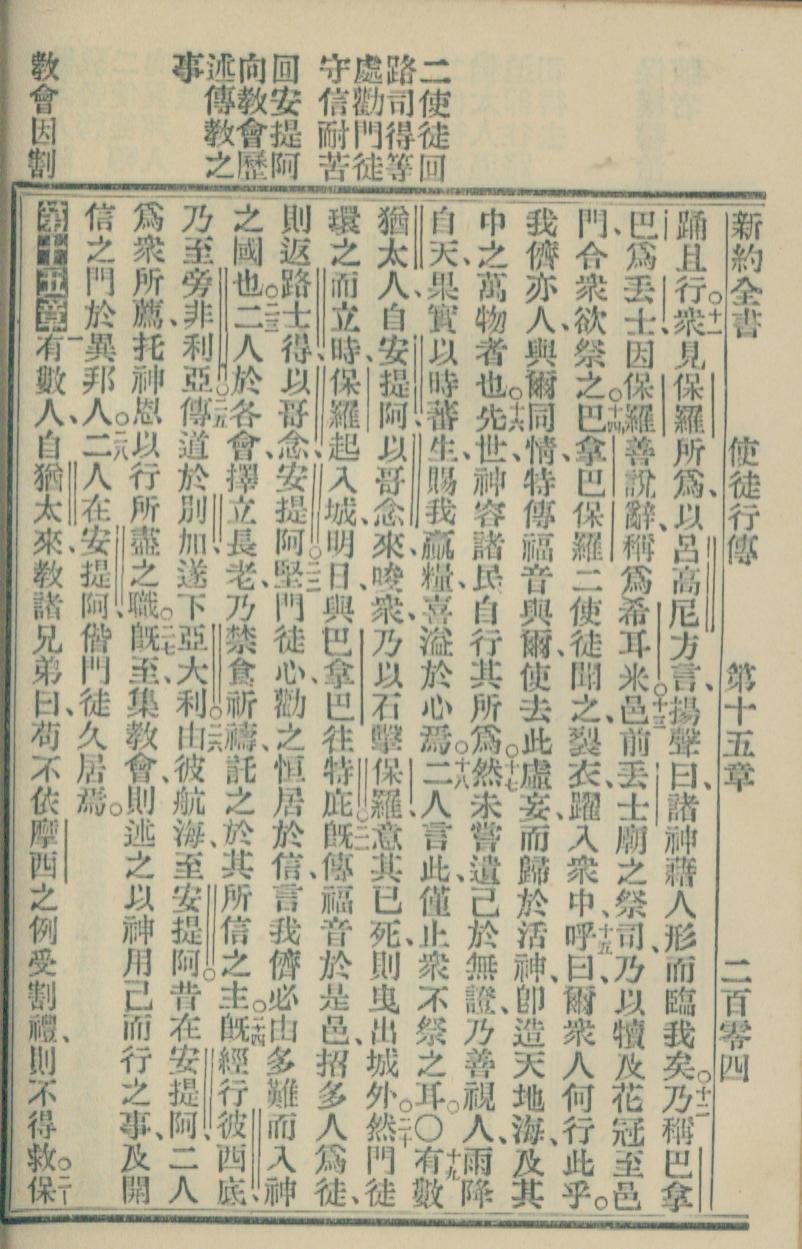 新約全書 使徒行傳 第十五章 二百零四
踊且行、○十一衆見保羅所爲、以呂高尼方言、揚聲曰、諸神藉人形而臨我矣、○十二乃稱巴拿
巴爲丟士、因保羅善說辭、稱爲希耳米、○十三邑前丟士廟之祭司、乃以犢及花冠至邑
門、合衆欲祭之、○十四巴拿巴保羅二使徒聞之、裂衣、躍入衆中、呼曰、十五爾衆人何行此乎。
我儕亦人、與爾同情、特傳福音與爾、使去此虛妄、而歸於活神、卽造天地海、及其
中之萬物者也、○十六先世、神容諸民自行其所爲、○十七然未嘗遺己於無證、乃善視人、雨降
自天、果實以時蕃生、賜我贏糧、喜溢於心焉、○十八二人言此、僅止衆不祭之耳。〇十九有數
猶太人、自安提阿、以哥念來、唆衆、乃以石擊保羅、意其已死、則曳出城外、○二十然門徒
環之而立時、保羅起入城、明日、與巴拿巴往特庇、○二一旣傳福音於是邑、招多人爲徒、
則返路士得、以哥念、安提阿、○二二堅門徒心、勸之恒居於信、言我儕必由多難而入神
之國也、○二三二人於各會、擇立長老、乃禁食祈禱、託之於其所信之主、○二四旣經行彼西底、
乃至旁非利亞、○二五傳道於別加、遂下亞大利、○二六由彼航海、至安提阿。昔在安提阿、二人
爲衆所薦、托神恩以行所盡之職、○二七旣至、集教會、則述之以神用己而行之事、及開
信之門於異邦人、○二八二人在安提阿、偕門徒久居焉。
第十五章 一有數人、自猶太來、教諸兄弟曰、苟不依摩西之例受割禮、則不得救、○二保
二使徒回
路司得等
處勸門徒
守信耐苦
回安提阿
向教會歷
述傳教之
事
教會因割